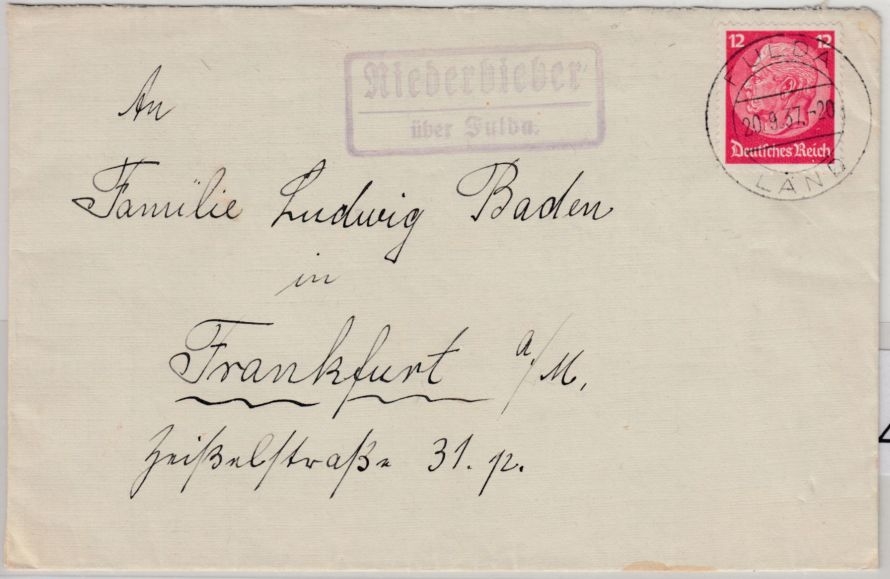 Niederbieber
über Fulda.
12 12
Deutsches Reich
FULDA
20.9.37.-20
LAND
An
Familie Ludwig Baden
in
Frankfurt a/M,
Zeißelstraße 31. p.